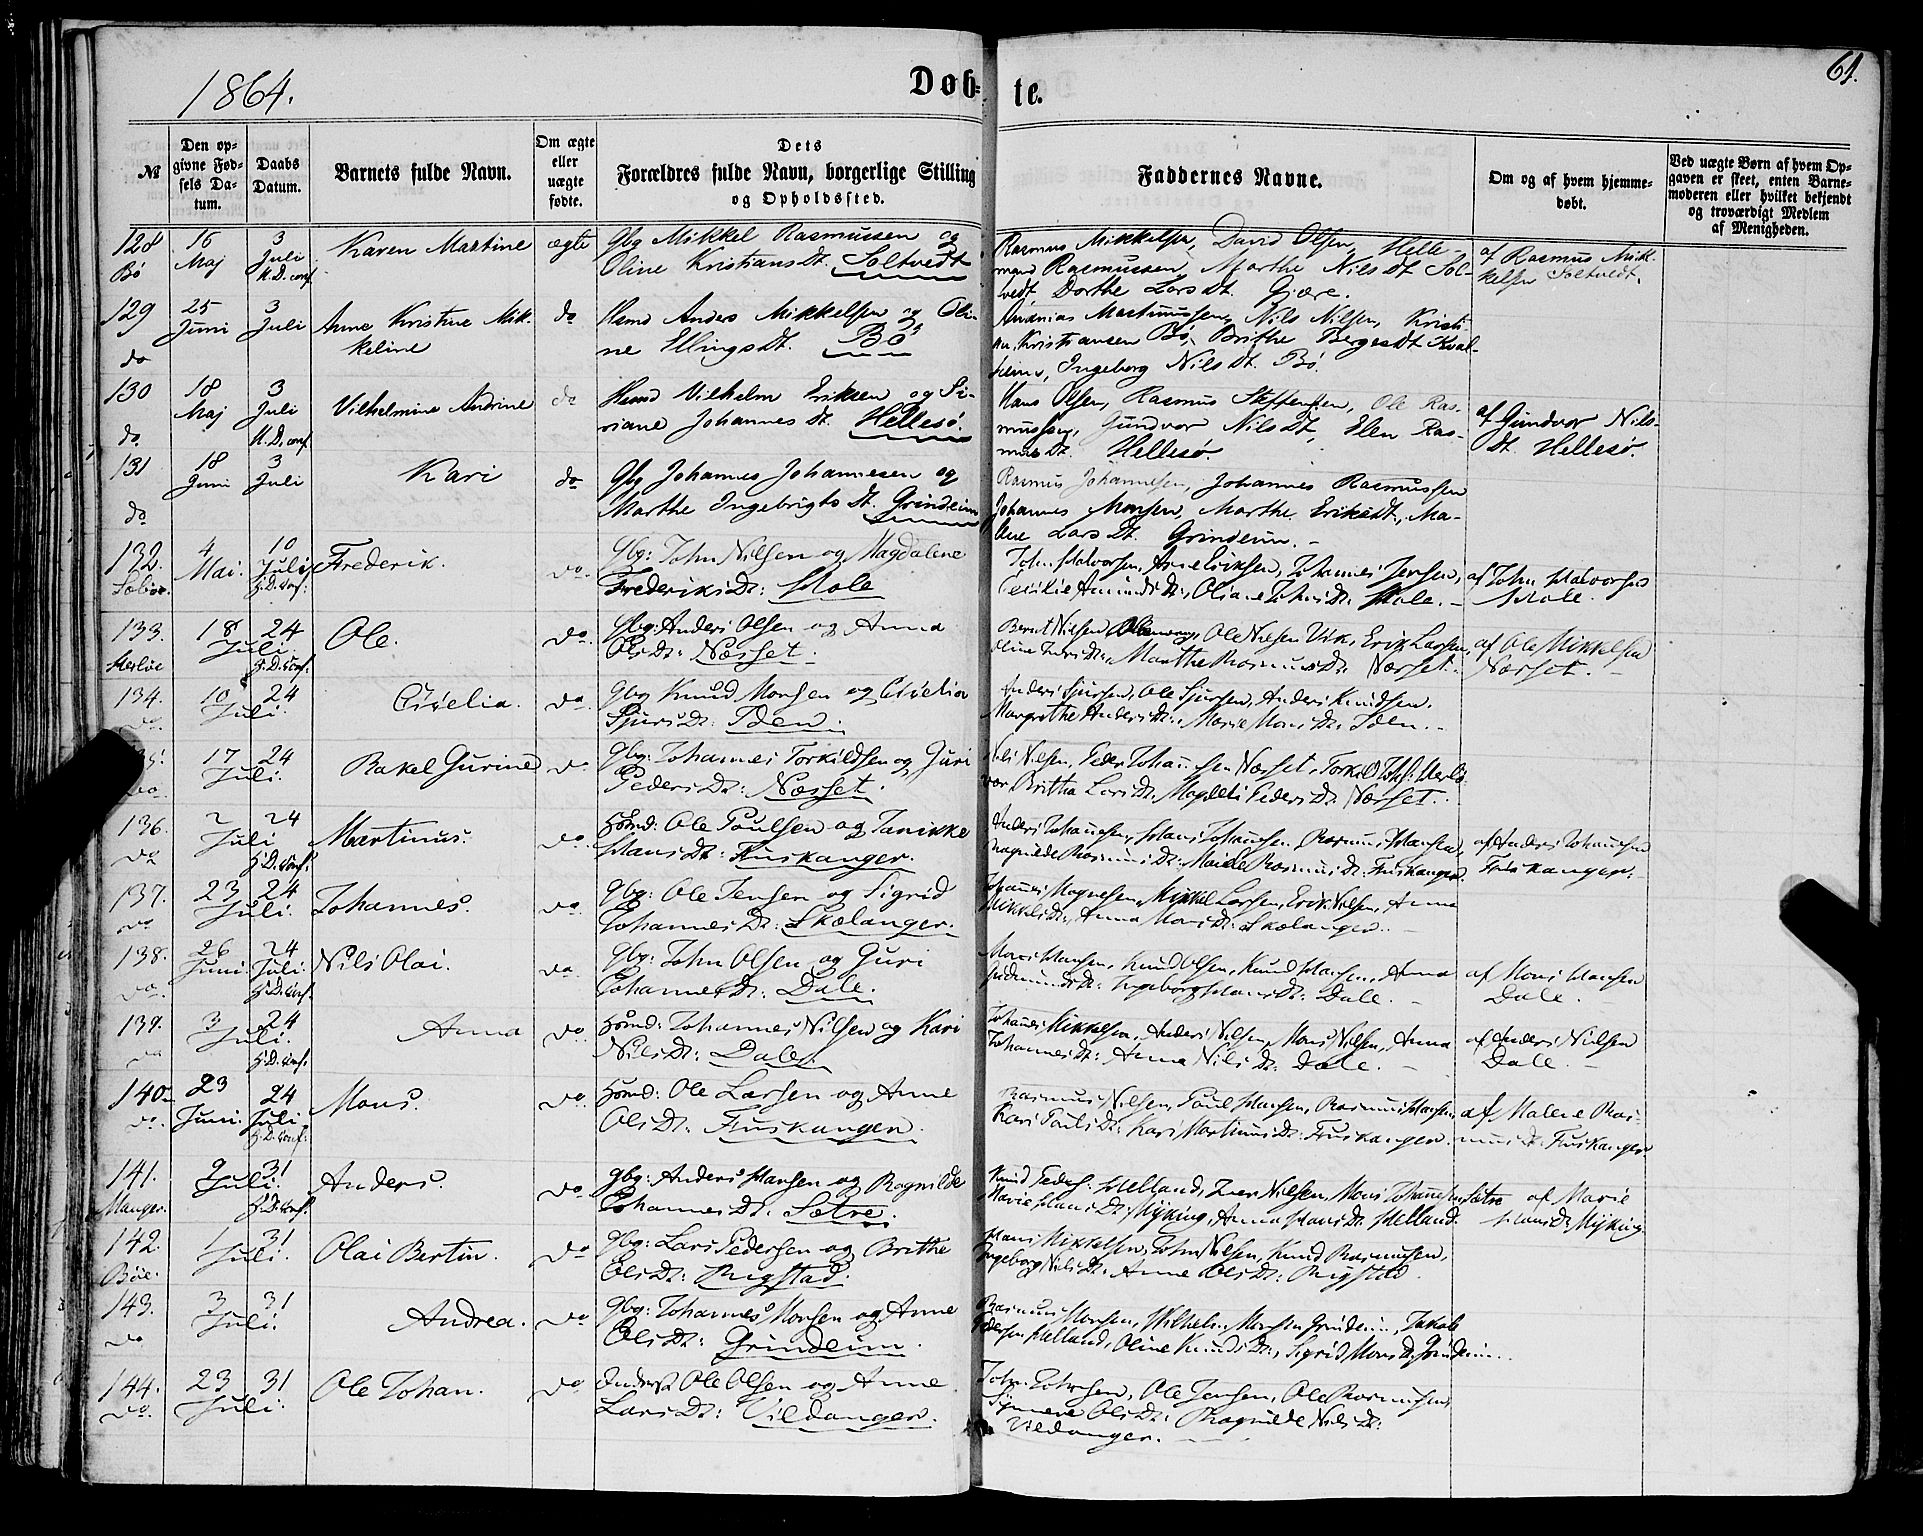 1864.
Døb-
te.
61.
№
Den op-
givne Fød-
sels Da-
tum.
Daabs
Datum.
Barnets fulde Navn.
Om ægte
eller
uægte
fødte.
Dets
Forældres fulde Navn, borgerlige Stilling
og Opholdssted.
Faddernes Navne.
Om og af hvem hjemme-
døbt.
Ved uægte Børn af hvem Op-
gaven er skeet, enten Barne-
moderen eller hvilket bekjendt
og troværdigt Medlem
af Menigheden.
128 Bø 16 Maj 3 Juli H. D. conf. Karen Martine ægte
Gbg Mikkel Rasmussen og
Oline Kristiansdt. Soltvedt
Rasmus Mikkelsen, David Olsen, Helle-
mand Rasmussen, Marthe Nilsdt Sol-
vedt, Dorthe Larsdt. Gjære.
af Rasmus Mik-
kelsen Soltvedt.
129 do 25 Juni 3 Juli Anne Kristine Mik-
keline do
Hsmd Anders Mikkelsen og Oli-
ne Ellingsdt. Bø
Ananias Martinussen, Nils Nilsen, Kristi-
an Kristiansen Bø, Brithe Bergesdt Kval-
heim, Ingeborg Nilsdt. Bø.
130 do 18 Maj 3 Juli H. D. conf. Vilhelmine Andrine do
Hsmd Vilhelm Eriksen og Si-
riane Johannesdt. Hellesø.
Hans Olsen, Rasmus Steffensen, Ole Ras-
mussen, Gundvor Nilsdt, Elen Ras-
musdt. Hellesø.
af Gundvor Nils-
dt. Hellesø.
131 do 18 Juni 3 Juli Kari do
Gbg Johannes Johannesen og
Marthe Ingebrigtsdt. Grindeim
Rasmus Johannesen, Johannes Rasmussen
Johannes Monsen, Marthe Eriksdt, Ma-
lene Larsdt. Grindeim.
132. 4 Mai. 10 Juli H. D. conf: Frederik. do.
Gbg: John Nilsen og Magdalene
Frederiksdt: Skole
John Halvorsen, Arne Eriksen, Johannes Jensen,
Cecilie Amundsdt:, Oliane Johnsdt: Skole.
af John Halvorsen
Skole.
133. Herløe 18 Juli 24 H. D. conf. Ole. do.
Gbg: Anders Olsen og Anna
Olsdt: Næsset.
Bernt Nilsen, Ole Nielsen Vik, Erik Larsen,
Oline Iversdt:, Marthe Rasmusdt: Næsset.
af Ole Mikkelsen
Næsset.
134. do 10 Juli. 24 Cicelia. do.
Gbg Knud Monsen og Cicelia
Sjursdt: Iden.
Anders Sjursen, Ole Sjursen, Anders Knudsen.
Margrethe Andersdt:, Marie Monsdt: Iden.
17 Juli. 24 Rakel Gurine do.
Gbg: Johannes Torkildsen og Guri
Pedersdt: Næsset.
Nils Nilsen, Peder Johannesen Næsset, Torkild Johs: Herlø-
vær Britha Larsdt:, Magdeli Pedersdt: Næsset.
136. do 2 Juli 24 H. D. conf. Martinus. do.
Hsmd: Ole Poulsen og Janikke
Hansdt: Fuskanger.
Anders Johannesen, Hans Johannesen, Rasmus Hansen,
Ragnilde Rasmusdt: Malene Rasmusdt: Fuskanger.
af Anders Johannesen
Fuskanger.
137. do 23 Juli 24 Johannes. do
Gbg: Ole Jensen og Sigrid
Johannesdt: Skælanger.
Johannes Magnesen, Mikkel Larsen, Erik Nilsen, Anne
Mikkelsdt:, Anna Monsdt: Skælanger.
138. do. 26 Juni 24 Juli. H. D. conf. Nils Olai. do
Gbg: John Olsen og Guri
Johannesdt: Dale.
Mons Hansen, Knud Olsen, Knud Hansen, Anna
Gudmundsdt: Ingeborg Hansdt: Dale.
af Mons Hansen
Dale.
139. do 3 Juli. 24 H. D. conf. Anna do
Hsmd: Johannes Nilsen og Kari
Nilsdt: Dale.
Johannes Mikkelsen, Anders Nilsen, Mons Nilsen, Anna
Johannesdt: Anna Nilsdt: Dale.
af Anders Nilsen
Dale.
140 do. 23 Juni. 24 Juli H. D. conf: Mons. do.
Hsmd: Ole Larsen og Anne
Olsdt: Fuskanger.
Rasmus Nilsen, Poul Hansen, Rasmus Hansen,
Kari Paulsdt: Kari Martinusdt: Fuskanger.
af Malene Ras-
musdt: Fuskanger.
141. Manger. 2 Juli. 31 H. D. conf. Anders. do
Gbg: Anders Hansen og Ragnilde
Johannesdt. Sætre.
Knud Peders: Helland, Iver Nilsen, Mons Johannesen Sætre
Marie Hansdt: Myking, Anna Hansdt: Helland.
af Marie
Hansdt Myking.
142. Bøe. 1 Juli 31 Olai Bertin. do
Gbg: Lars Pedersen og Brithe
Olsdt: Rygstad.
Hans Mikkelsen, John Nilsen, Knud Rasmussen,
Ingeborg Nilsdt: Anne Olsdt: Rygstad.
143. do 3 Juli. 31 Andrea. do
Gbg: Johannes Monsen og Anne
Olsdt: Grindeim.
Rasmus Monsen, Wilhelm Monsen Grindeim, Jakob
Pedersen Helland, Oline Knudsdt:, Sigrid Monsdt Grindeim.
144. do. 23 Juli. 31 Ole Johan. do
Inderst Ole Olsen og Anne
Larsdt: Vildanger.
John Johnsen, Ole Jensen, Ole Rasmussen,
Synneve Olsdt: Ragnilde Nilsdt:
Vildanger.